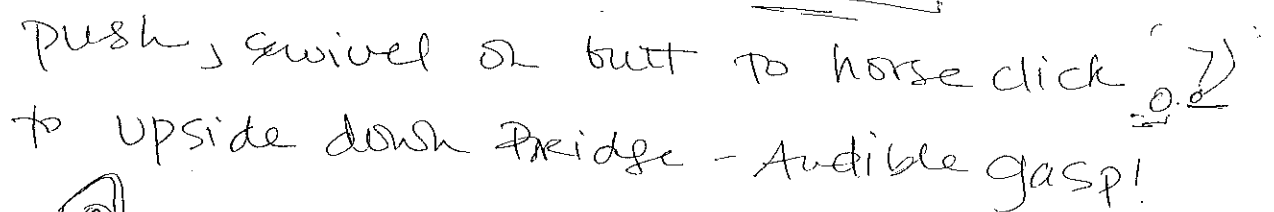 push, swivel on butt to horse click
to upside down Bridge - Audible gasp!